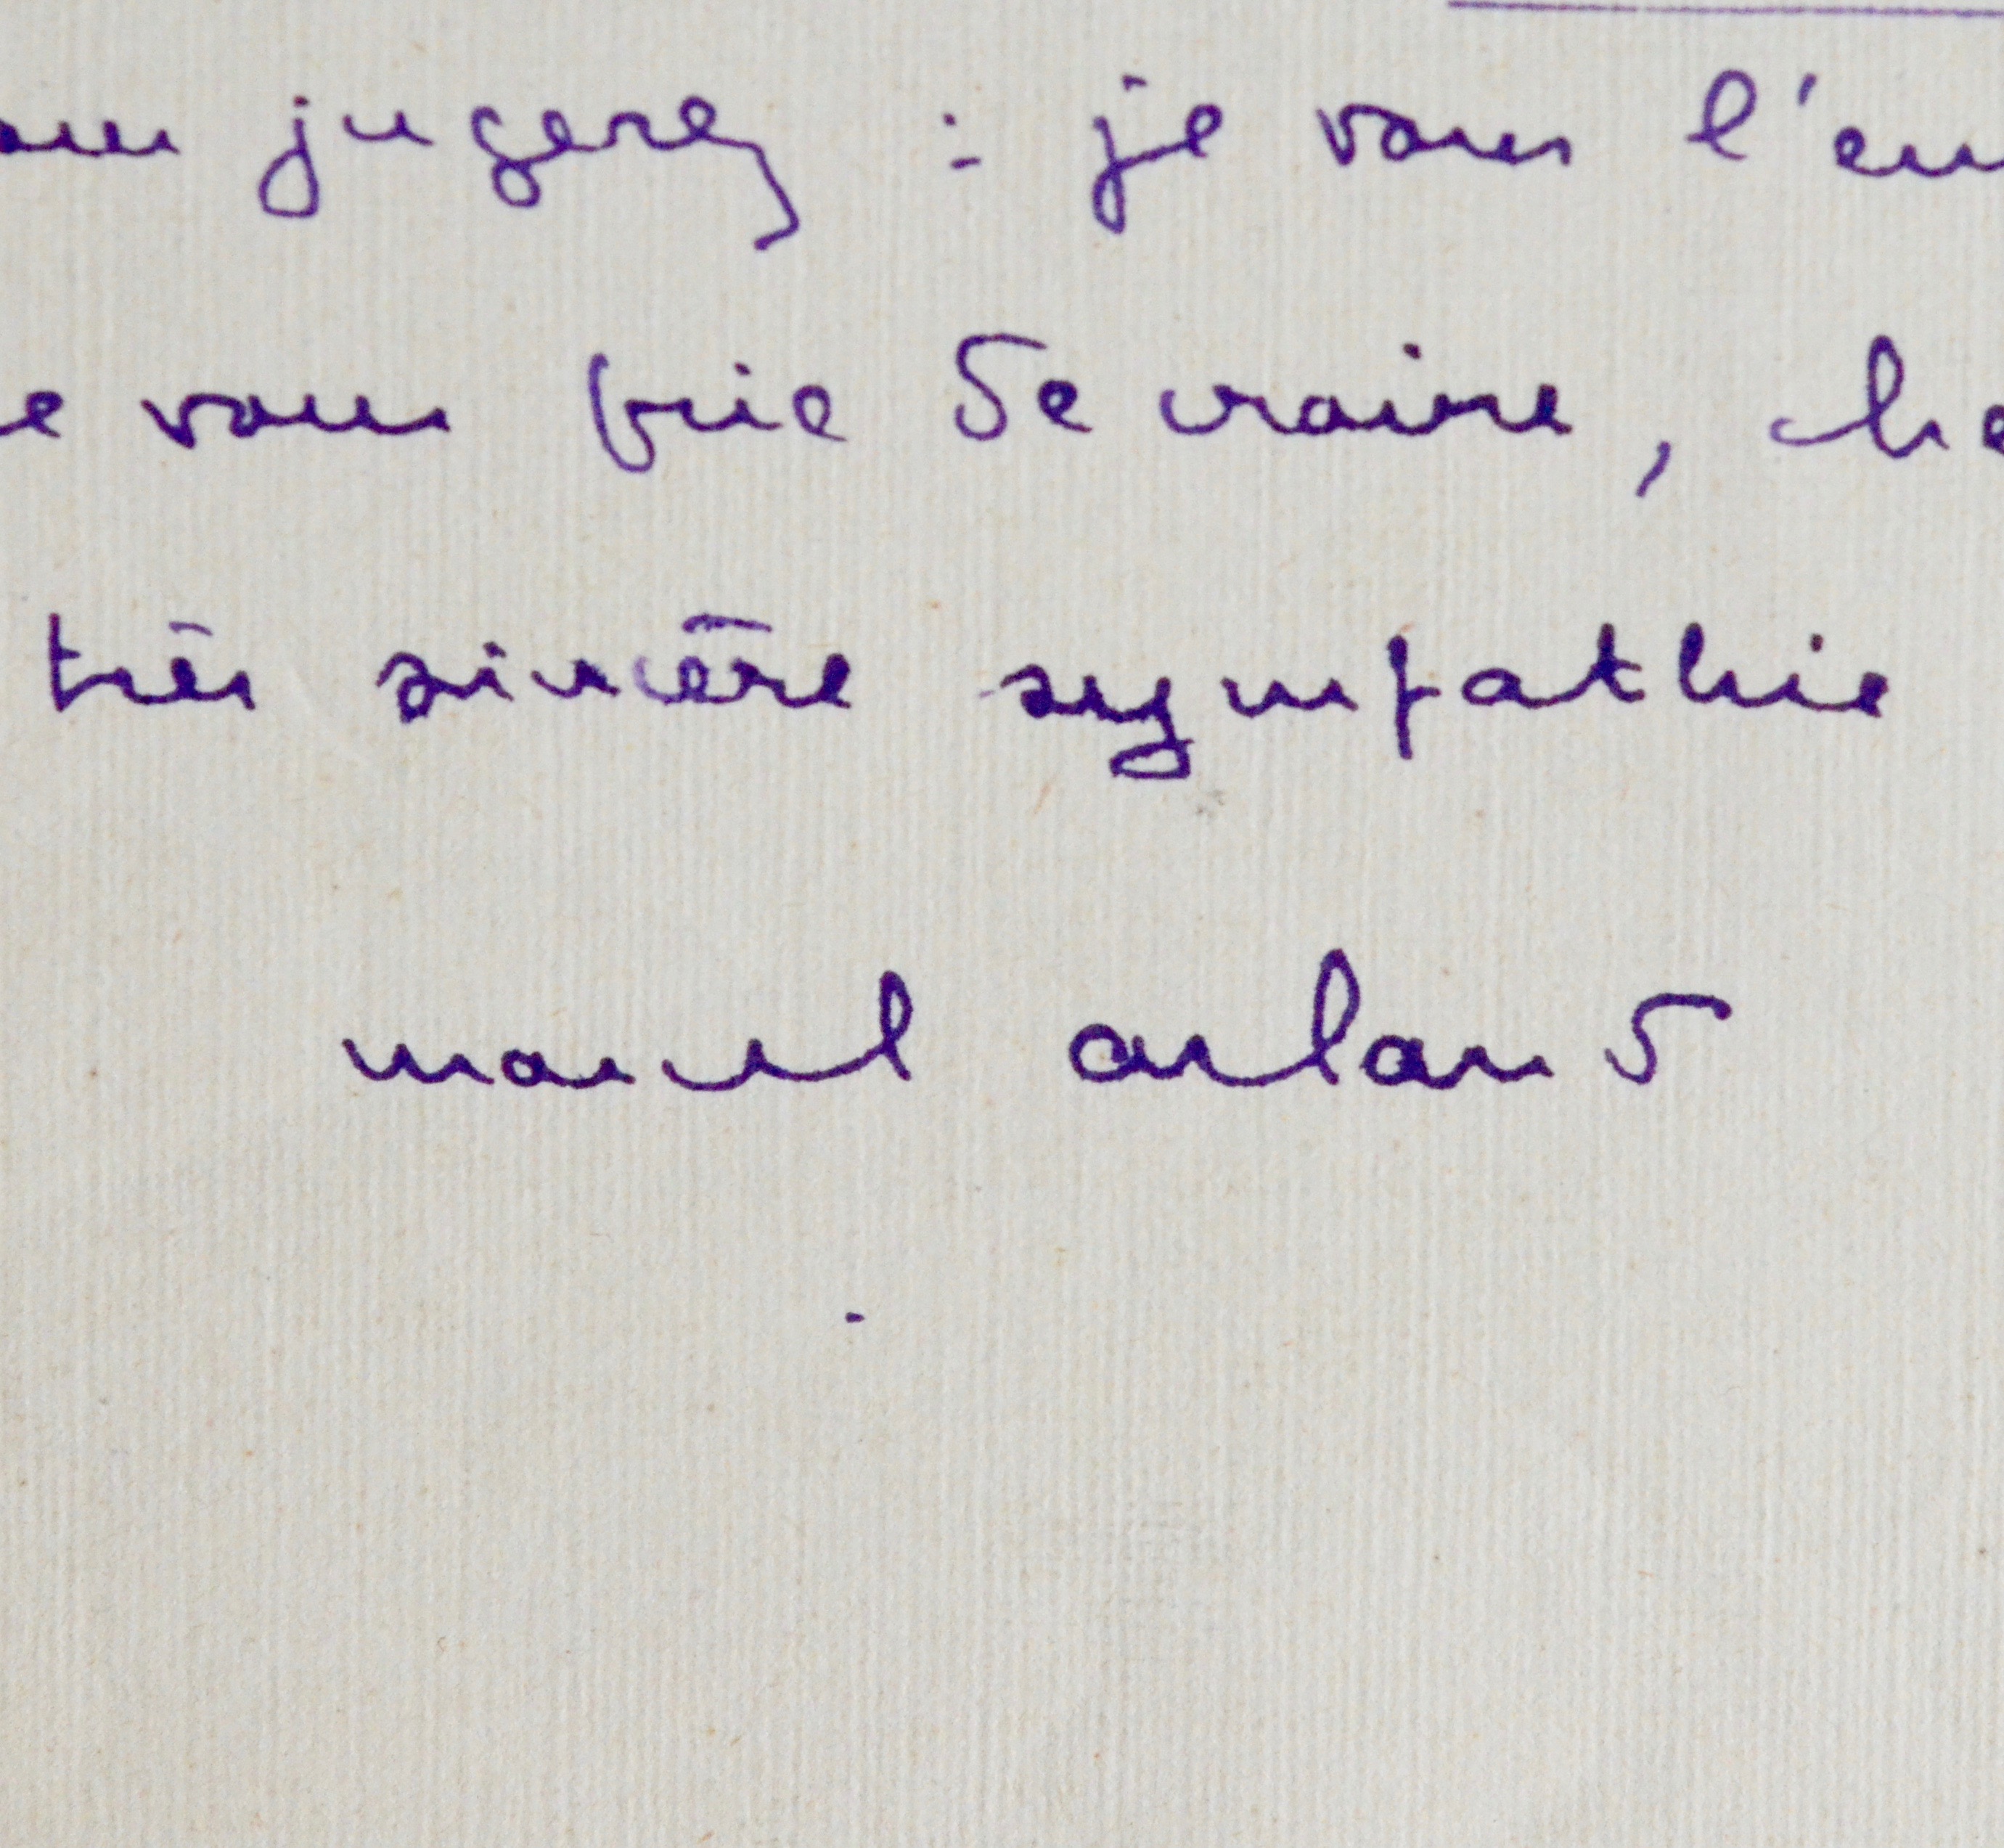 vous jugerez : je vous l'en
e vous prie de croire, che
très sincère sympathie
marcel arland